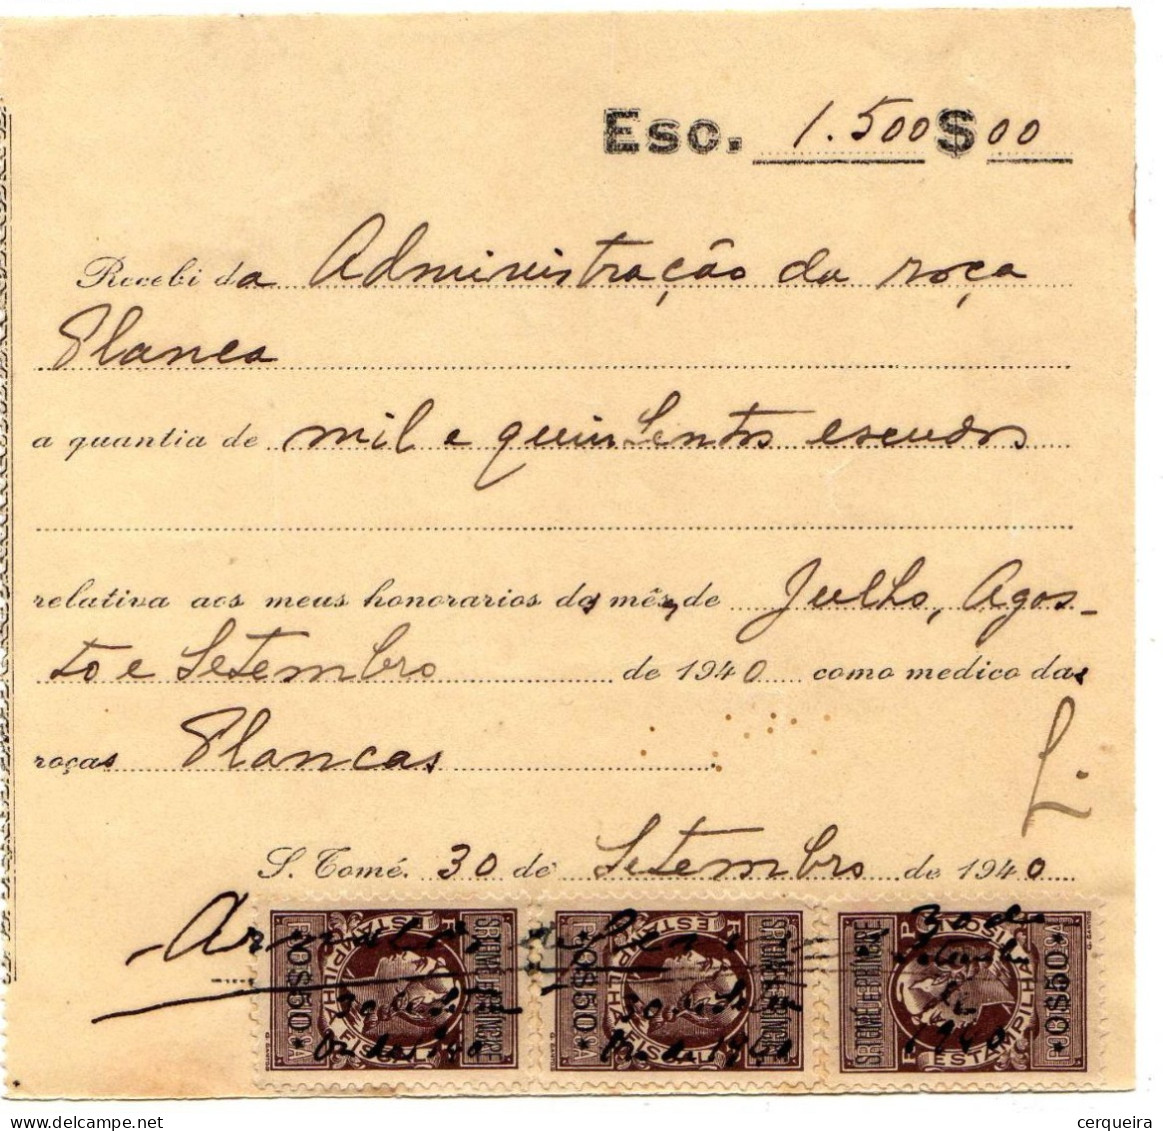 Esc. 1.500$00
Recebi da Administração da roça
Planca
a quantia de mil e quinhentos escudos
relativa aos meus honorarios do mês, de Julho, Agos-
to e Setembro de 1940 como medico das
roças Plancas
S. Tomé, 30 de Setembro de 1940
S. TOMÉ E PRINCIPE
ESTAMPILHA FISCAL
*0$50*
30 de
Setembro
de 1940
S. TOMÉ E PRINCIPE
ESTAMPILHA FISCAL
*0$50*
30 de
de 1940
S. TOMÉ E PRINCIPE
ESTAMPILHA FISCAL
*0$50*
30 de
Setembro
de
1940
cerqueira